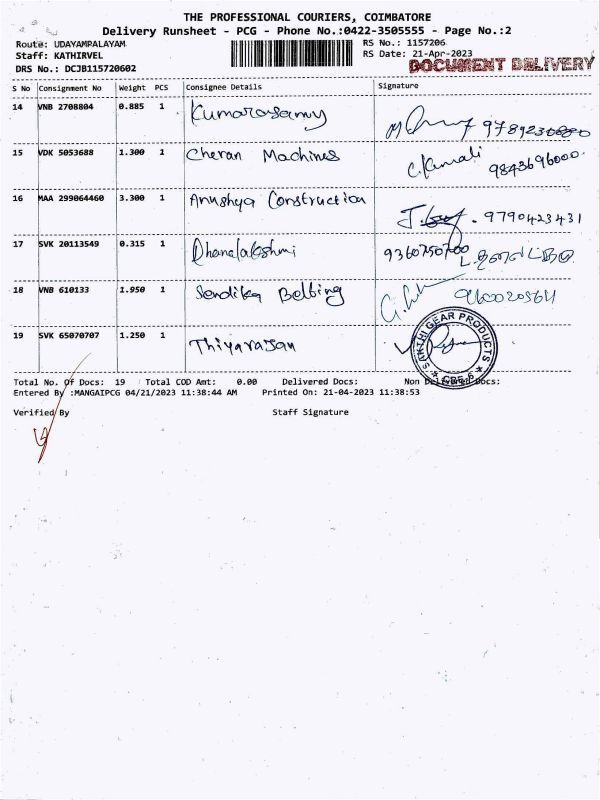 THE PROFESSIONAL COURIERS, COIMBATORE
Delivery Runsheet - PCG - Phone No.:0422-3505555 - Page No.:2
Route: UDAYAMPALAYAM RS No.: 1157206
Staff: KATHIRVEL RS Date: 21-Apr-2023
DRS No.: DCJB115720602 DOCUMENT DELIVERY
S No Consignment No Weight PCS Consignee Details Signature
14 VNB 2708804 0.885 1 Kumarasamy
15 VDK 5053688 1.300 1 Cheran Machines C. Kamali 9843696000.
16 MAA 299064460 3.300 1 Anushya Construction 9790423431
17 SVK 20113549 0.315 1 Dhanalakshmi 9360750700
18 VNB 610133 1.950 1 Sendika Belting
19 SVK 65070707 1.250 1 Thiyarajan
SAKTHI GEAR PRODUCTS
* CBE-6 *
Total No. Of Docs: 19 Total COD Amt: 0.00 Delivered Docs: Non Delivered Docs:
Entered By :MANGAIPCG 04/21/2023 11:38:44 AM Printed On: 21-04-2023 11:38:53
Verified By Staff Signature